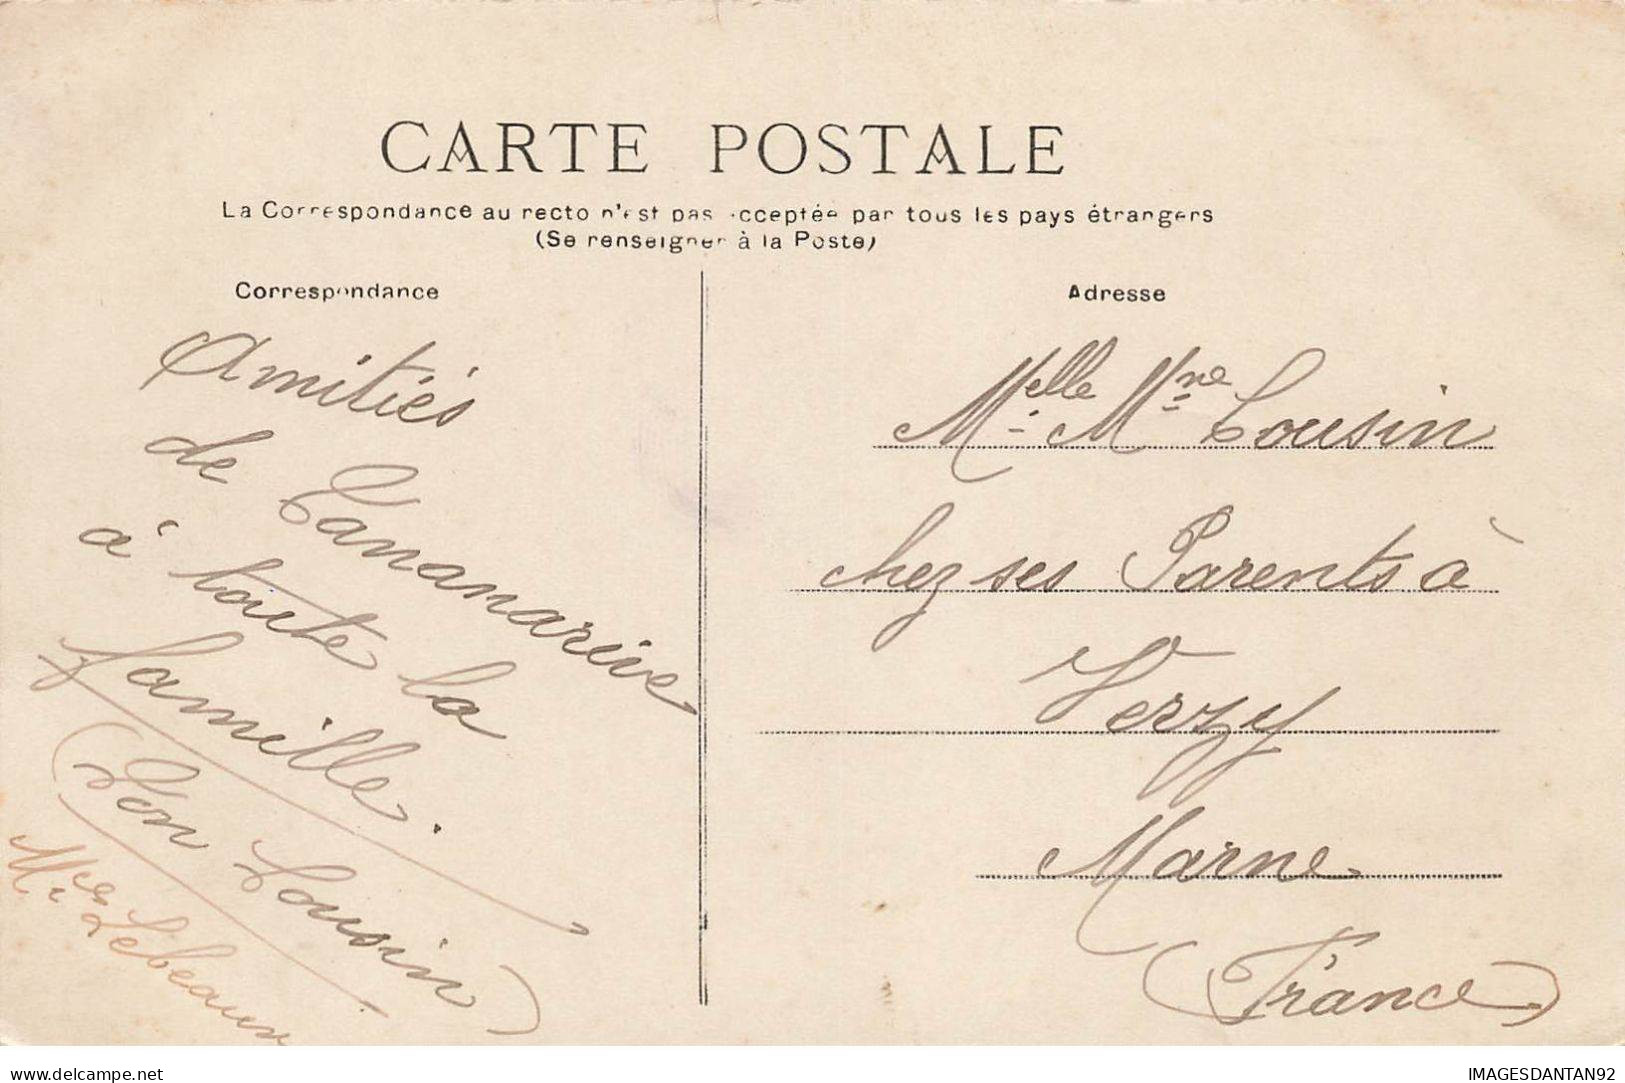 CARTE POSTALE
La Correspondance au recto n'est pas acceptée par tous les pays étrangers
(Se renseigner à la Poste)
Correspondance
Amitiés
de Tananarive
à toute la
famille.
(Ton Cousin)
Mces Lebeaux
Adresse
Melle Mne Cousin
chez ses Parents à
Verzy
Marne
(France)
delcampe.net
IMAGESDANTAN92